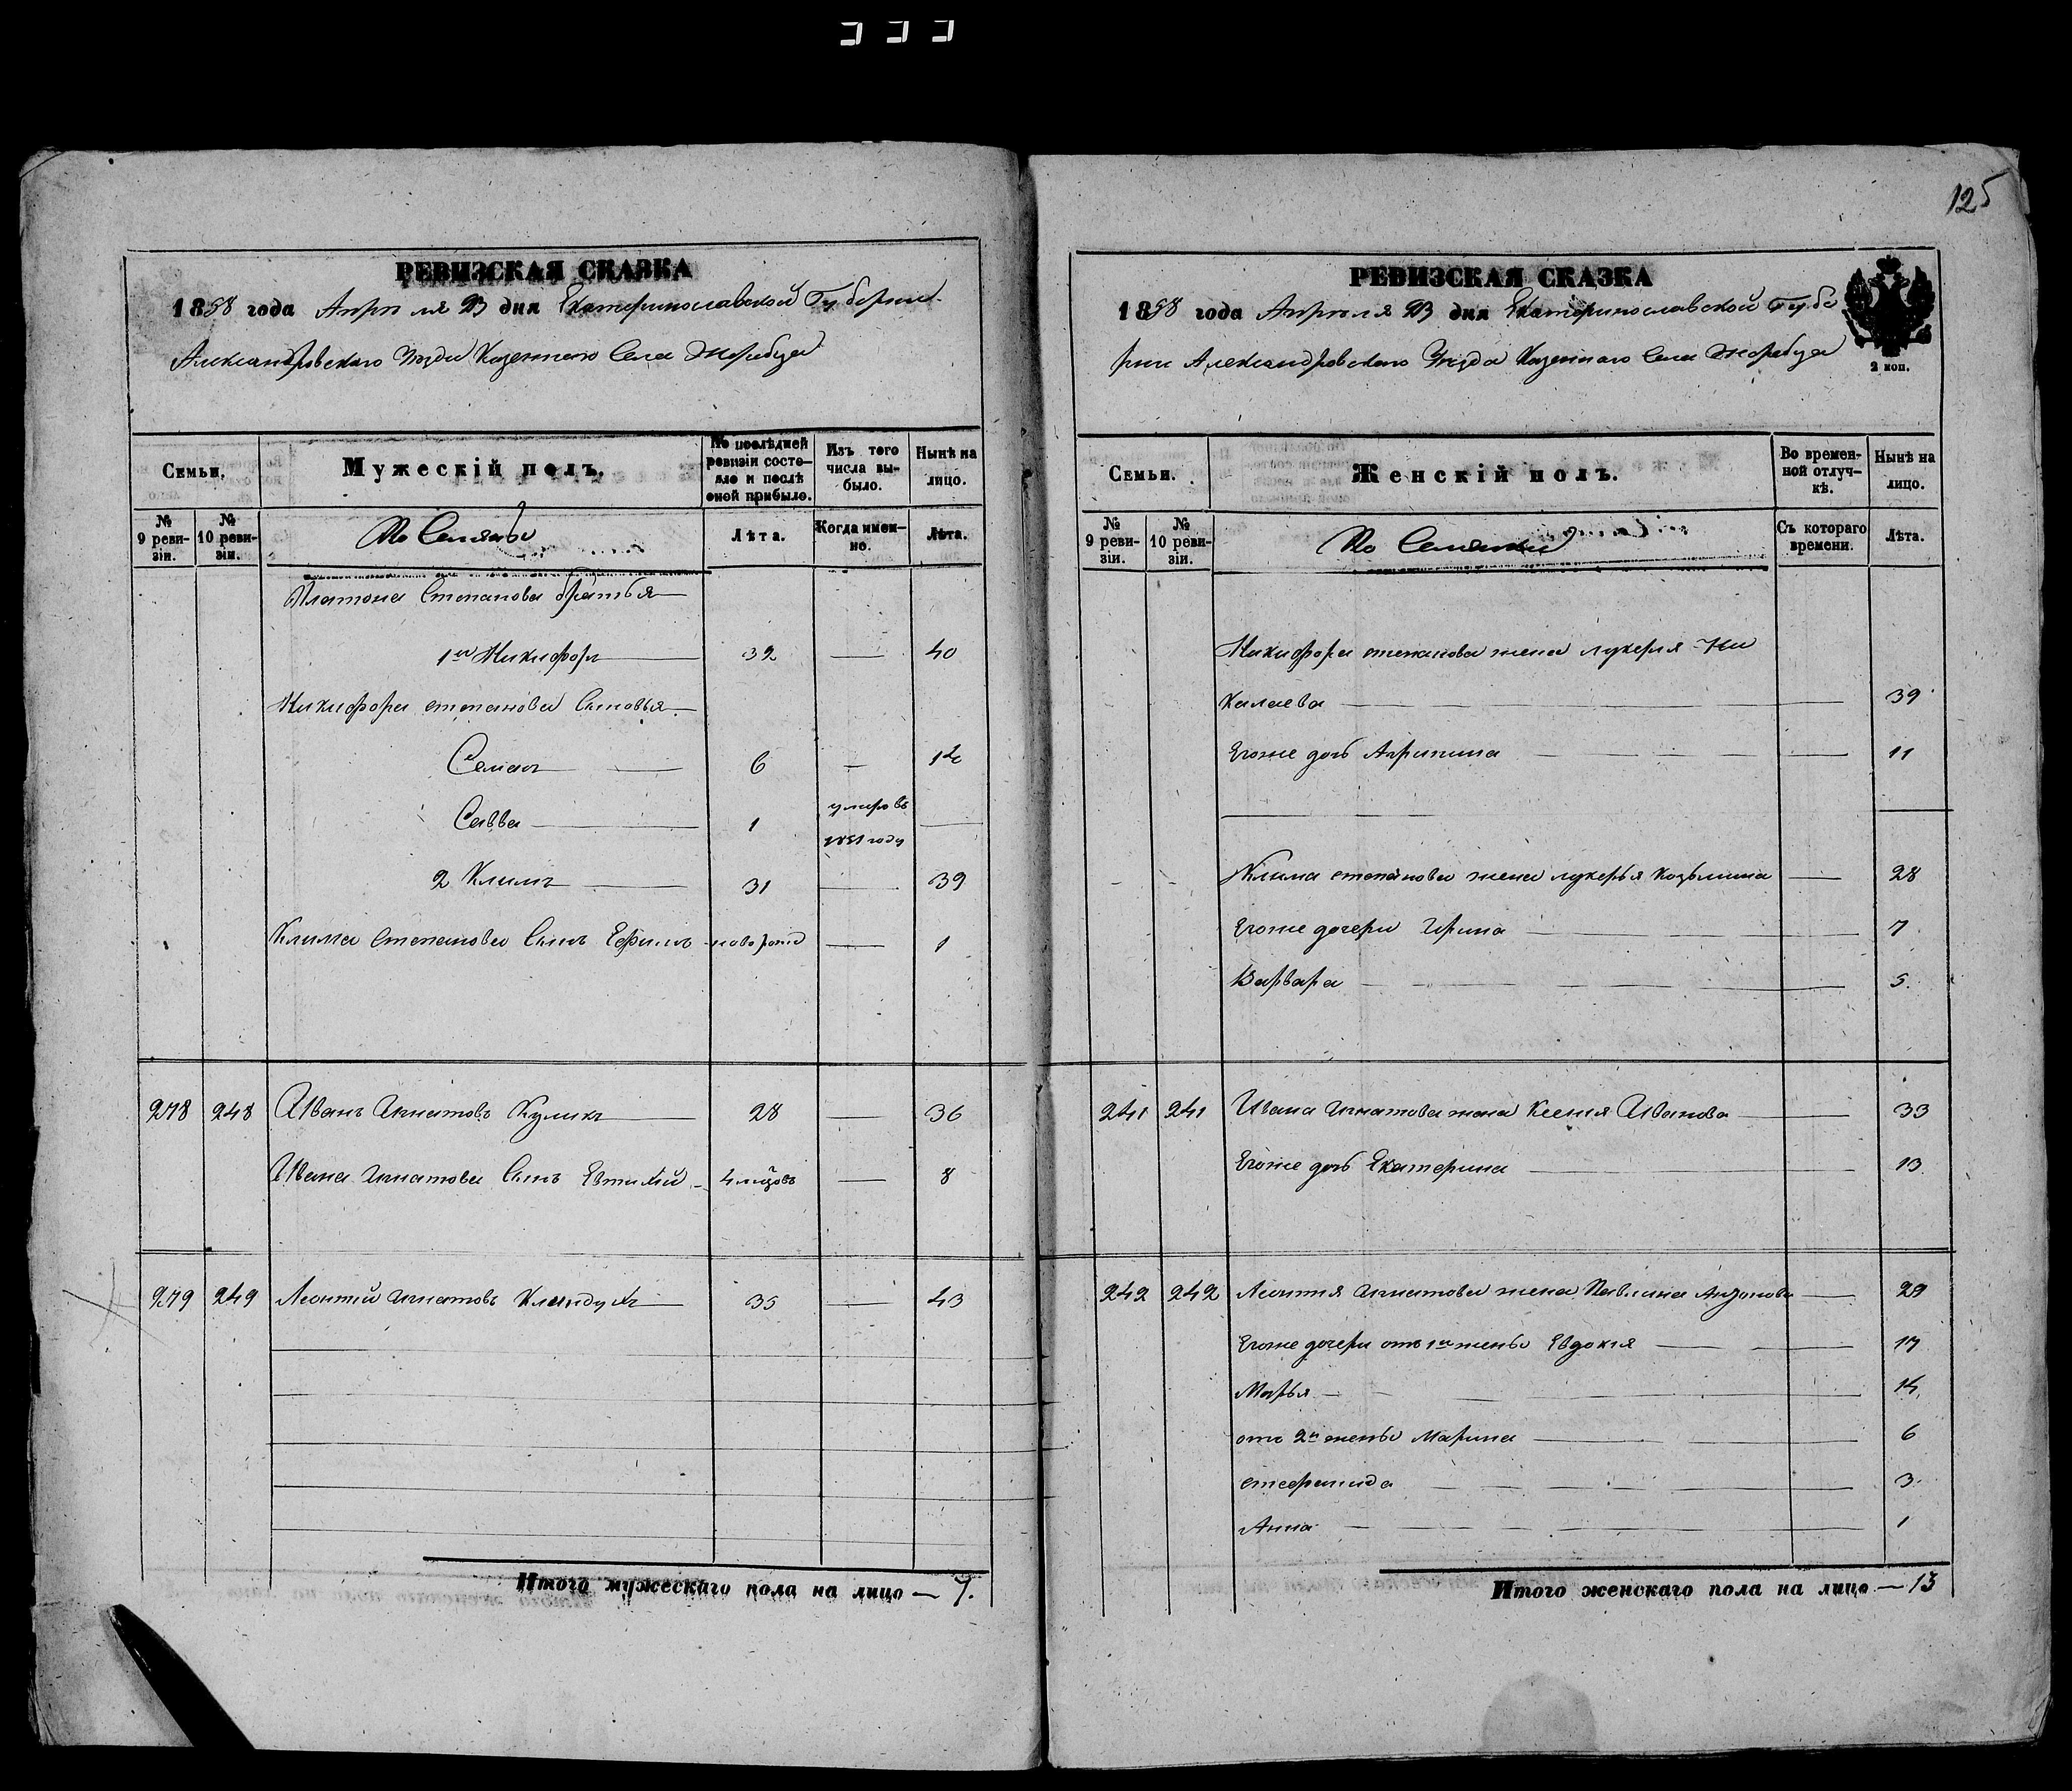 125
РЕВИЗСКАЯ СКАЗКА
1858 года Апреля 23 дня Екатеринославской Губернии
Александровского Уезда Казенного Села Жеребца
Семьи.
Мужескій полъ.
По послѣдней ревизіи состояло и послѣ оной прибыло.
Изъ того числа выбыло.
Нынѣ на лицо.
№ 9 ревизіи.
№ 10 ревизіи.
Лѣта.
Когда именно.
Лѣта.
Платона Степанова братья
1й Никифоръ 32 — 40
Никифора степанова Сыновья
Семенъ 6 — 14
Савва 1 умеръ въ
1851 году
2 Климъ 31 — 39
Клима Степанова Сынъ Ефимъ новорожд — 1
278 248 Иванъ Игнатовъ Куликъ 28 — 36
Ивана Игнатова Сынъ Евтихий 4 месяцовъ — 8
279 249 Леонтий Игнатовъ 35 — 43
Итого мужескаго пола на лицо — 7.
РЕВИЗСКАЯ СКАЗКА
1858 года Апреля 23 дня Екатеринославской Губе
рнии Александровского Уезда Казенного Села Жеребца
2 коп.
Семьи.
Женскій полъ.
Во временной отлучкѣ.
Нынѣ на лицо.
№ 9 ревизіи.
№ 10 ревизіи.
Съ котораго времени.
Лѣта.
Никифора степанова жена лукерия Ни
колаева — 39
Егоже дочь Агрипина — 11
Клима степанова жена лукерья Козьмина — 28
Егоже дочери Ирина — 7
Варвара — 5
241 241 Ивана Игнатова жена Ксения Иванова — 33
Егоже дочь Екатерина — 13
242 242 Леонтия Игнатова жена Павлина — 29
Егоже дочери отъ 1й жены Евдокия — 17
Марья — 14
отъ 2й жены Марина — 6
стефанида — 3
Анна — 1
Итого женскаго пола на лицо — 13